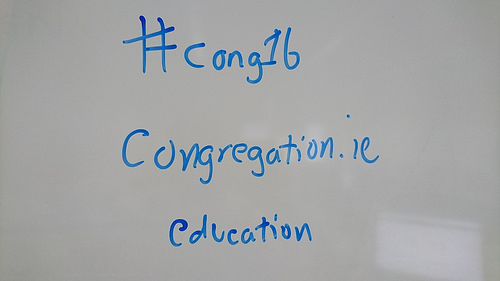 #cong16
Congregation.ie
education